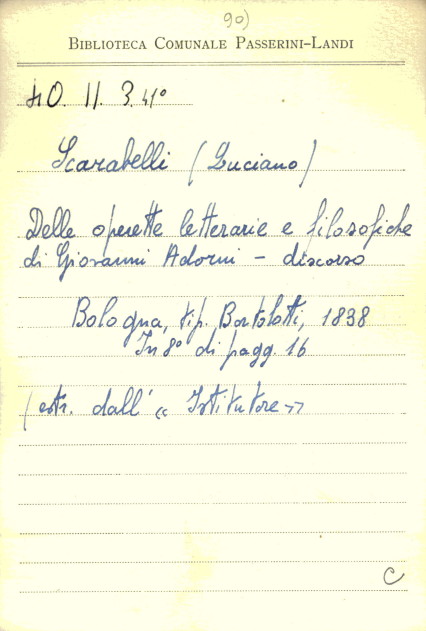 90)
BIBLIOTECA COMUNALE PASSERINI-LANDI
40. II. 3. 41°
Scarabelli (Luciano)
Delle operette letterarie e filosofiche
di Giovanni Adorni - discorso
Bologna, tip. Bortolotti, 1838
In 8° di pagg. 16
(estr. dall' « Istitutore »
C